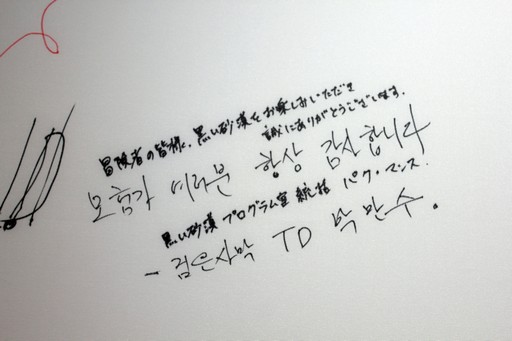 冒険者の皆様、黒い砂漠をお楽しみいただき
誠にありがとうございます。
모험가 여러분 항상 감사합니다
黒い砂漠 プログラム室 統括 パク・マンス.
- 검은사막 TD 박만수.